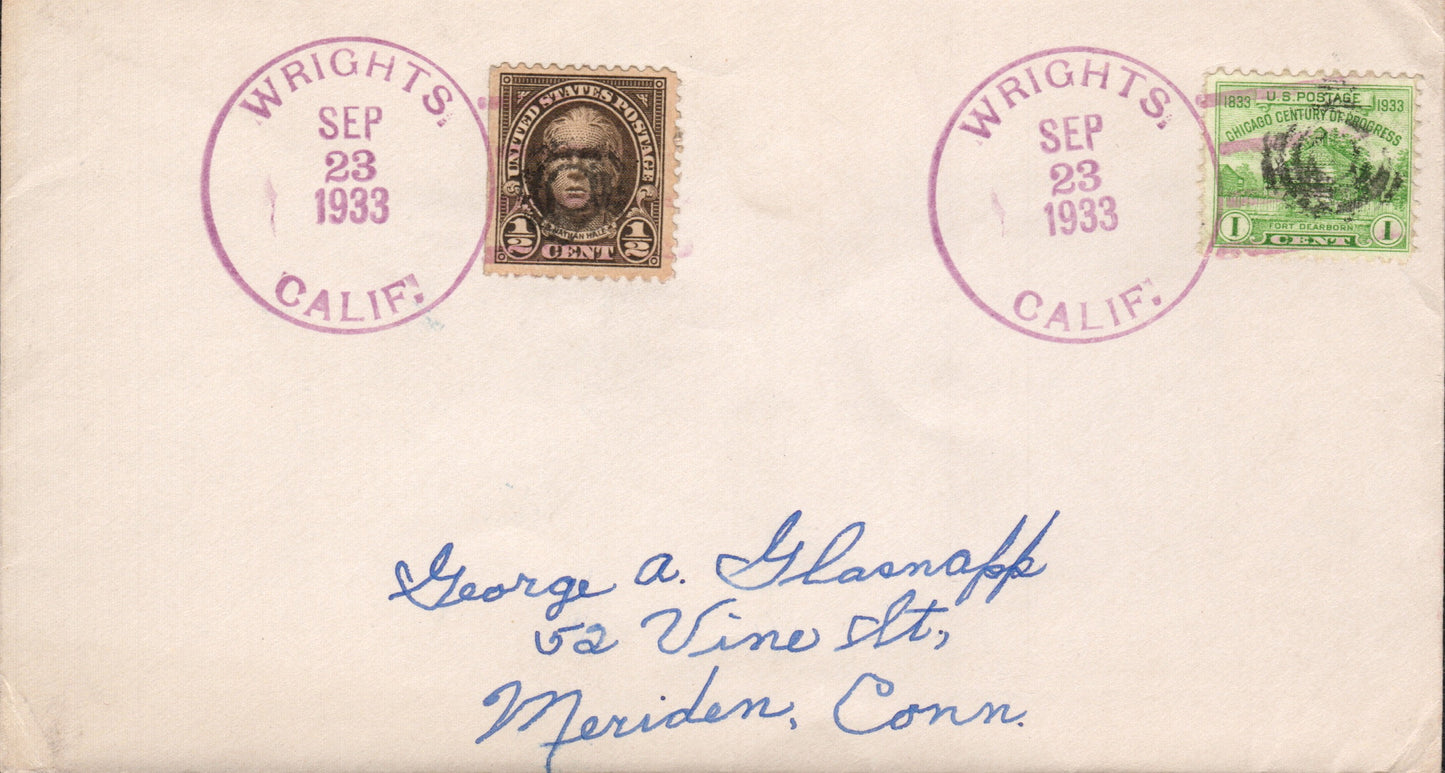 WRIGHTS,
SEP
23
1933
CALIF.
UNITED STATES POSTAGE
NATHAN HALE
1/2 CENT 1/2
WRIGHTS,
SEP
23
1933
CALIF.
1833 U.S. POSTAGE 1933
CHICAGO CENTURY OF PROGRESS
FORT DEARBORN
1 CENT 1
George A. Glasnapp
52 Vine St.,
Meriden, Conn.